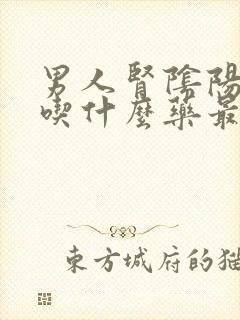 男人腎陰陽
喫什麼藥最
東方城府的猫